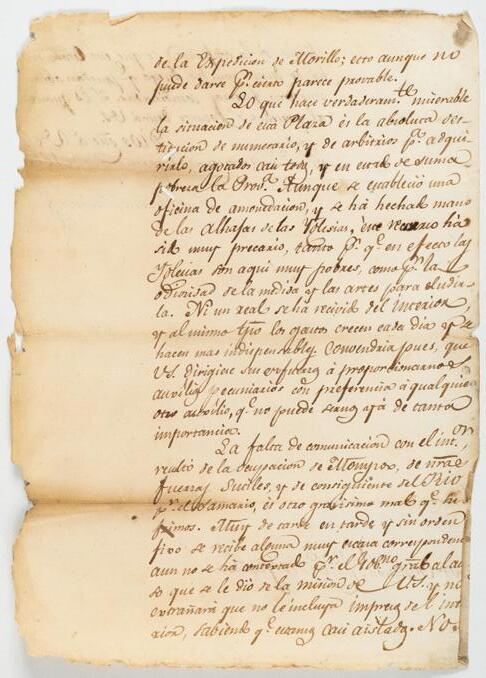 de la Expedicion de Morillo; esto aunque no
puede darse p.r cierto parece provable.
Lo que hace verdaderam.te miserable
la situacion de esta Plaza es la absoluta des-
titucion de numerario, y de arbitrios p.a adqui-
rirlo, agotados casi todos, y en estado de suma
pobreza la Prov.a Aunque se estableció una
oficina de amonedacion, y se há hechado mano
de las Alhajas de las Yglesias, este recurso há
sido muy precario, tanto p.r q.e en efecto las
Yglesias son aqui muy pobres, como p.r la
odiosidad de la medida y las artes para eludir-
la. Ni un real se ha recivido del interior,
y al mismo tpo los gastos crecen cada dia y se
hacen mas indispensables. Convendria pues, que
VS. dirigiese sus esfuerzos á proporcionarnos
auxilios pecuniarios con preferencia á qualquier
otro auxilio, q.e no puede sernos yá de tanta
importancia.
La falta de comunicacion con el int.or
resultó de la ocupacion de Mompox, de nras
fuerzas Sutiles, y de consiguiente del Rio
p.r el Samario, és otro gravisimo mal q.e su-
frimos. Muy de tarde en tarde y sin orden
fixo se recibe alguna muy escasa correspondencia
aun no se há contextado p.r el Gob.no gral al
se que se le dio de la mision de VS. y no
extrañará que no le incluya impresos del inte-
rior, sabiendo q.e estamos casi aislados. No